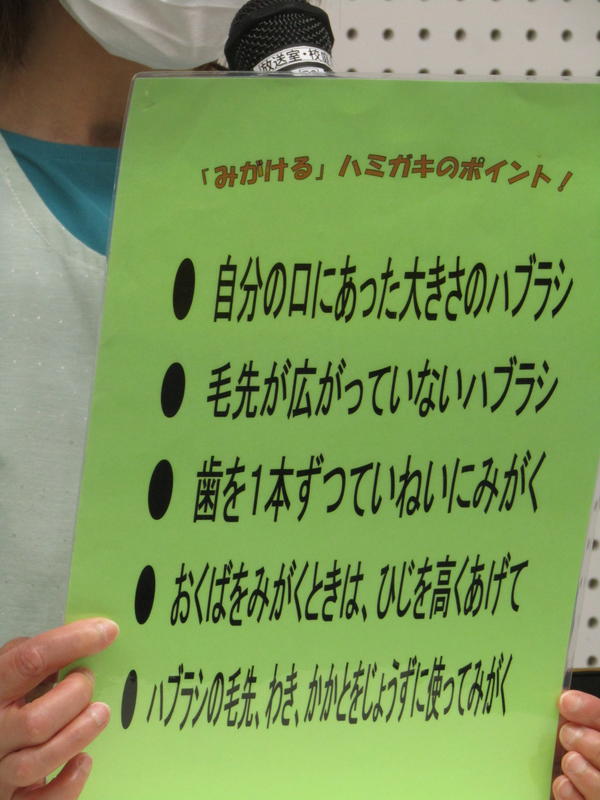 放送室・校
「みがける」ハミガキのポイント！
● 自分の口にあった大きさのハブラシ
● 毛先が広がっていないハブラシ
● 歯を1本ずつていねいにみがく
● おくばをみがくときは、ひじを高くあげて
● ハブラシの毛先、わき、かかとをじょうずに使ってみがく